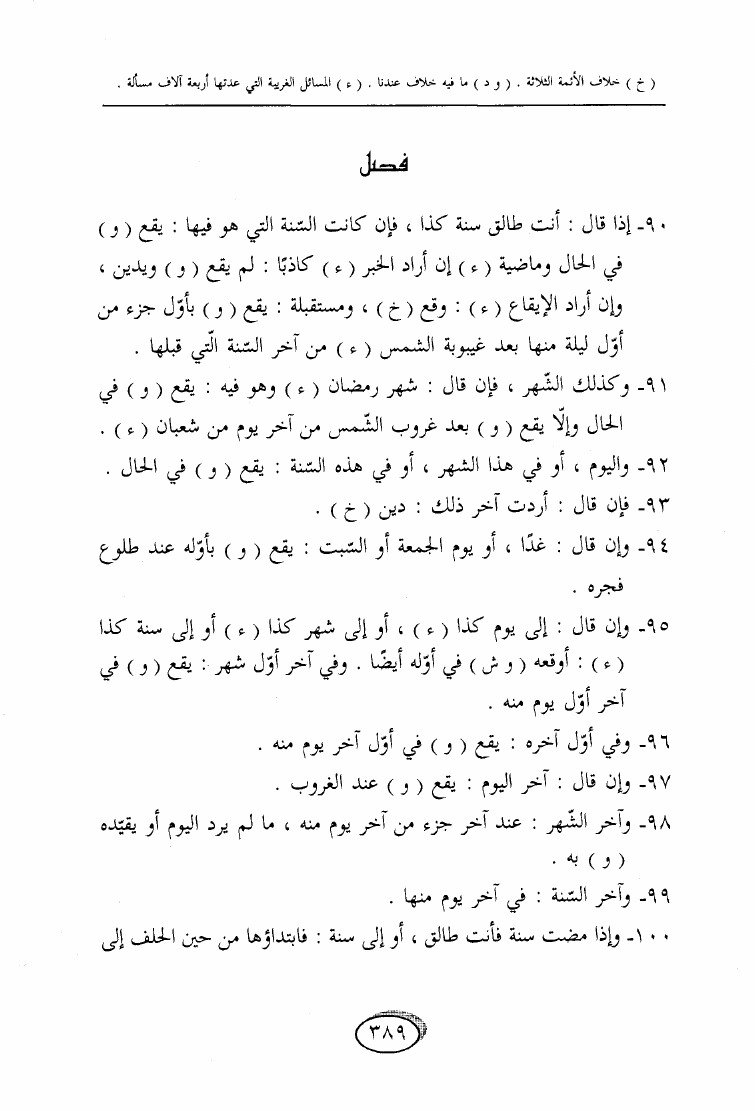 ( خ ) خلاف الأئمة الثلاثة . ( و د ) ما فيه خلاف عندنا . ( ء ) المسائل الغريبة التي عدتها أربعة آلاف مسألة .
فصل
٩٠ـ إذا قال : أنت طالق سنة كذا ، فإن كانت السّنة التي هو فيها : يقع ( و )
في الحال وماضية ( ء ) إن أراد الخبر ( ء ) كاذبًا : لم يقع ( و ) ويدين ،
وإن أراد الإيقاع ( ء ) : وقع ( خ ) ، ومستقبلة : يقع ( و ) بأوّل جزء من
أوّل ليلة منها بعد غيبوبة الشمس ( ء ) من آخر السّنة الّتي قبلها .
٩١ـ وكذلك الشّهر ، فإن قال : شهر رمضان ( ء ) وهو فيه : يقع ( و ) في
الحال وإلّا يقع ( و ) بعد غروب الشّمس من آخر يوم من شعبان ( ء ) .
٩٢ـ واليوم ، أو في هذا الشهر ، أو في هذه السّنة : يقع ( و ) في الحال .
٩٣ـ فإن قال : أردت آخر ذلك : دين ( خ ) .
٩٤ـ وإن قال : غدًا ، أو يوم الجمعة أو السّبت : يقع ( و ) بأوّله عند طلوع
فجره .
٩٥ـ وإن قال : إلى يوم كذا ( ء ) ، أو إلى شهر كذا ( ء ) أو إلى سنة كذا
( ء ) : أوقعه ( و ش ) في أوله أيضًا . وفي آخر أوّل شهر : يقع ( و ) في
آخر أوّل يوم منه .
٩٦ـ وفي أوّل آخره : يقع ( و ) في أوّل آخر يوم منه .
٩٧ـ وإن قال : آخر اليوم : يقع ( و ) عند الغروب .
٩٨ـ وآخر الشّهر : عند آخر جزء من آخر يوم منه ، ما لم يرد اليوم أو يقيّده
( و ) به .
٩٩ـ وآخر السّنة : في آخر يوم منها .
١٠٠ـ وإذا مضت سنة فأنت طالق ، أو إلى سنة : فابتداؤها من حين الحلف إلى
٣٨٩